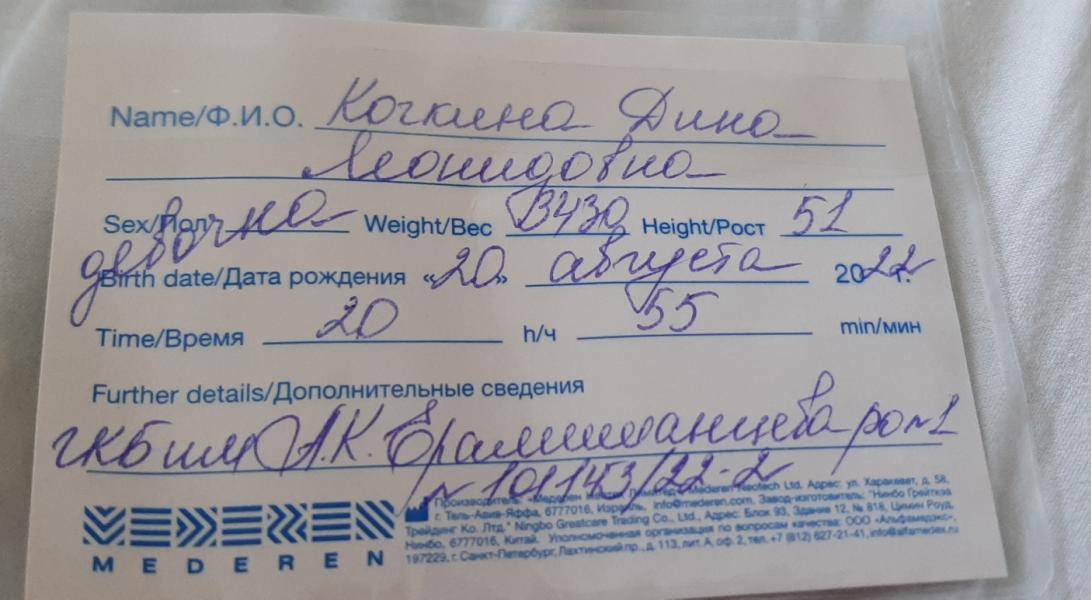 Name/Ф.И.О. Кочкина Дина
Леонидовна
Sex/Пол девочка Weight/Вес 3430 Height/Рост 51
Birth date/Дата рождения «20» августа 2022 г.
Time/Время 20 h/ч 55 min/мин
Further details/Дополнительные сведения
ГКБ им А.К. Ерамишанцева ро №1
№ 101143/22-2
Производитель: «Медерен Neotech Ltd. Адрес: ул. Харакевет, д. 58,
г. Тель-Авив-Яффа, 6777016, Израиль, info@mederen.com. Завод-изготовитель: "Нинбо Грейткэа
Трейдинг Ко. Лтд." Ningbo Greatcare Trading Co., Ltd., Адрес: Блок 93, Здание 12, № 818, Цимин Роуд,
Нинбо, 6777016, Китай. Уполномоченная организация по вопросам качества: ООО «Альфамедэкс»,
197229, г. Санкт-Петербург, Лахтинский пр., д. 113, лит. А, оф. 2, тел. +7 (812) 627-21-41, info@alfamedex.ru
MEDEREN